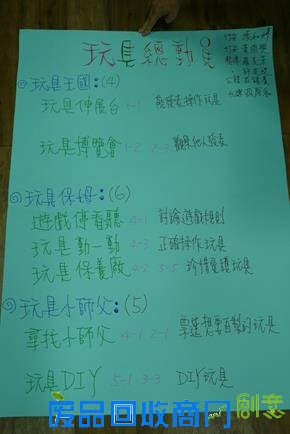 玩具總動員
玩具王國：(4)
玩具伸展台 1-1 能探索操作玩具
玩具博覽會 1-2 2-3 觀察他人發表
玩具保姆：(6)
遊戲停看聽 4-1 討論遊戲規則
玩具動一動 4-3 正確操作玩具
玩具保養廠 4-2 5-5 珍惜愛護玩具
玩具小師父：(5)
尋找小師父 4-1 2-1 票選想要自製的玩具
玩具DIY 5-1 3-3 DIY玩具
廢品回收商网
创意